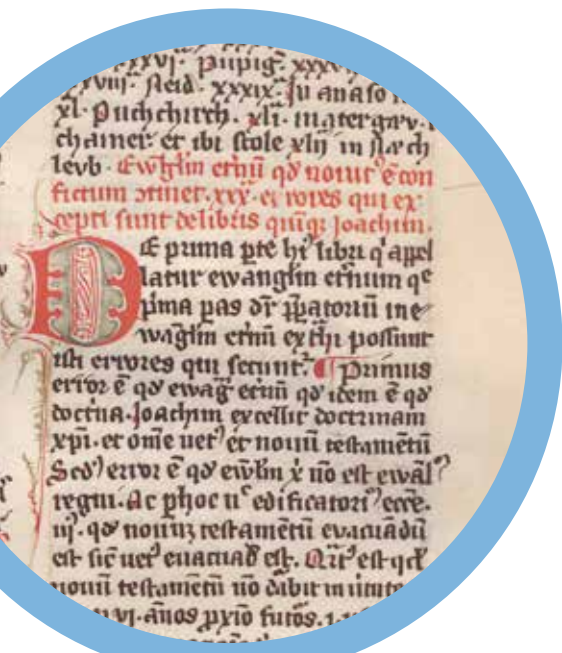 xxxvj. pupig̅. xxx
xviij. steid. xxxix. Ju anaso
xl. Puchchirch. xlı. mater
chamer. et ibi scole xlij in
levb. Ewg̅lin et̅nu̅ qd̕ notur̕ e̅ con
fictum ↄtinet. xxx. et rores qui ex
cepti sunt de libris quīq; Joachim.
DE prima p̅te hi̕ libri q̕ appel
latur ewang̅lin et̅nium q̅e
p̅ima pas dr̅ p̅patoriu̅ in e
wag̅lin et̅ni ex t̅hi possunt
isti errores qui secunt̅. ¶ Primus
error e̅ qd̕ ewag̅ et̅ni qd̕ idem e̅ qd̕
doct̅ina. Joachim excellit doctrinam
xp̅i. et om̅e uet̕ et nouu̅ testame̅tu̅
Scd̕ error e̅ qd̕ ew̅lin x̅ no̅ est ewa̅l̕
regni. Ac p̱ hoc n̕ edificatori̕ ecc̅e.
iij. qd̕ nouuz testame̅tu̅ euacuadu̅
est sic̅ uet̕ euacuad̅ est. Q̅rt̕ est qd̕
nouu̅ testame̅tu̅ no̅ dabit in uirtute
vj. an̅os p̱xi̅o futo̅s. 1.